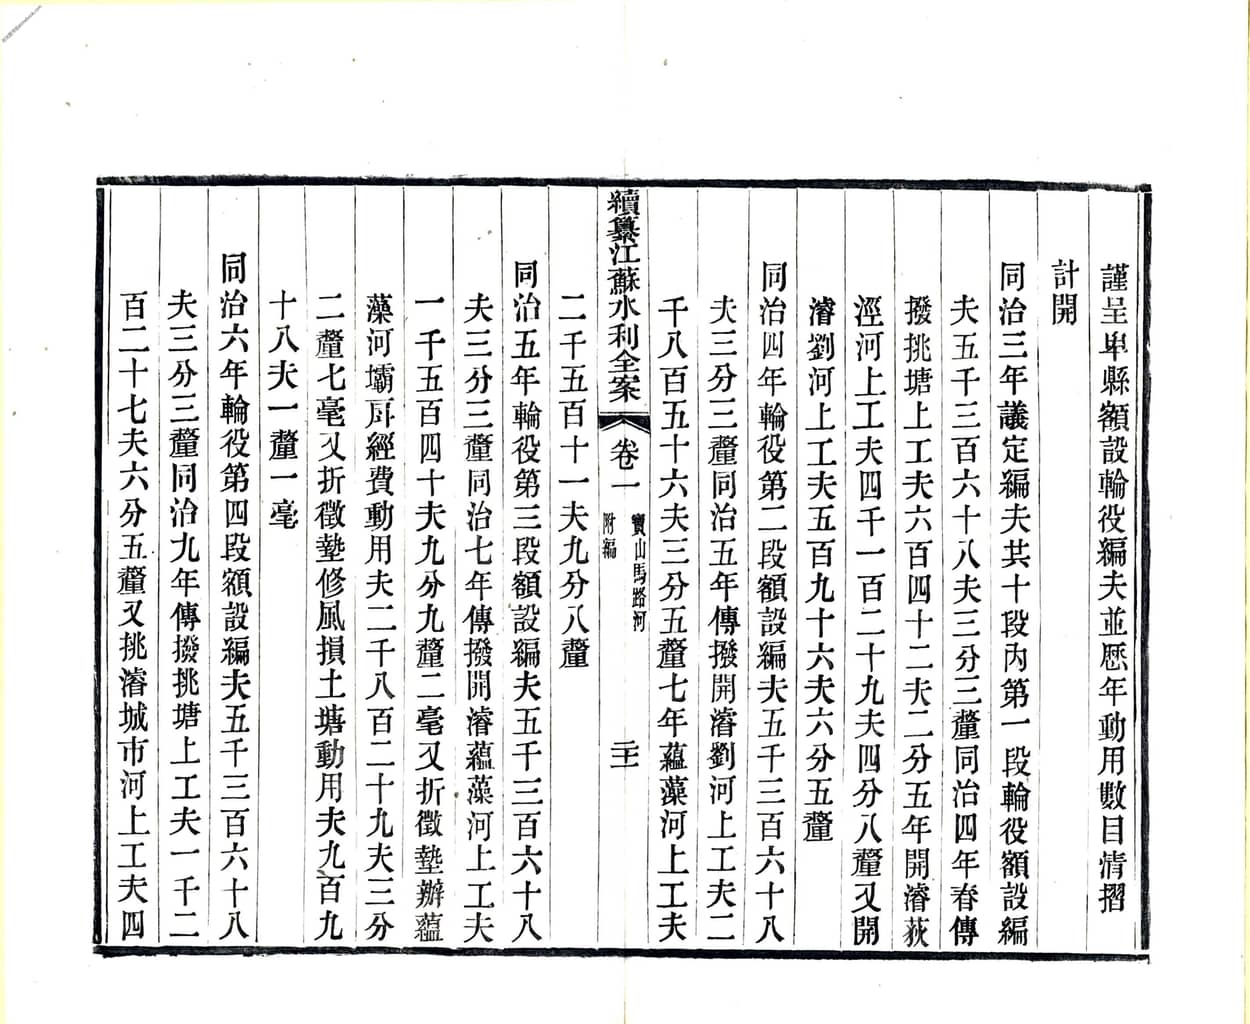 謹呈卑縣額設輪役編夫並厯年動用數目清摺
計開
同治三年議定編夫共十段內第一段輪役額設編
夫五千三百六十八夫三分三釐同治四年春傳
撥挑塘上工夫六百四十二夫二分五年開濬荻
涇河上工夫四千一百二十九夫四分八釐又開
濬劉河上工夫五百九十六夫六分五釐
同治四年輪役第二段額設編夫五千三百六十八
夫三分三釐同治五年傳撥開濬劉河上工夫二
千八百五十六夫三分五釐七年蘊藻河上工夫
續纂江蘇水利全案 卷一 寶山馬路河 附編 二十一
二千五百十一夫九分八釐
同治五年輪役第三段額設編夫五千三百六十八
夫三分三釐同治七年傳撥開濬蘊藻河上工夫
一千五百四十夫九分九釐二毫又折徵墊辦蘊
藻河壩戽經費動用夫二千八百二十九夫三分
二釐七毫又折徵墊修風損土塘動用夫九百九
十八夫一釐一毫
同治六年輪役第四段額設編夫五千三百六十八
夫三分三釐同治九年傳撥挑塘上工夫一千二
百二十七夫六分五釐又挑濬城市河上工夫四